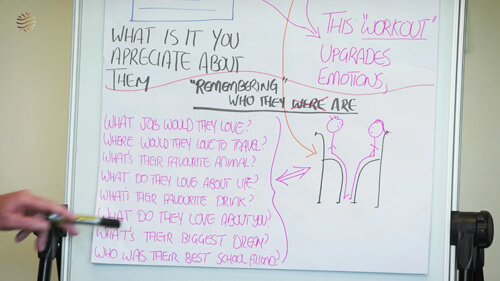 WHAT IS IT YOU
APRECIATE ABOUT
THEM
THIS "WORKOUT"
UPGRADES
EMOTIONS,
"REMEMBERING"
WHO THEY WERE ARE
WHAT JOB WOULD THEY LOVE?
WHERE WOULD THEY LOVE TO TRAVEL?
WHAT'S THEIR FAVOURITE ANIMAL?
WHAT DO THEY LOVE ABOUT LIFE?
WHAT'S THEIR FAVOURITE DRINK?
WHAT DO THEY LOVE ABOUT YOU?
WHAT'S THEIR BIGGEST DREAM?
WHO WAS THEIR BEST SCHOOL FRIEND?